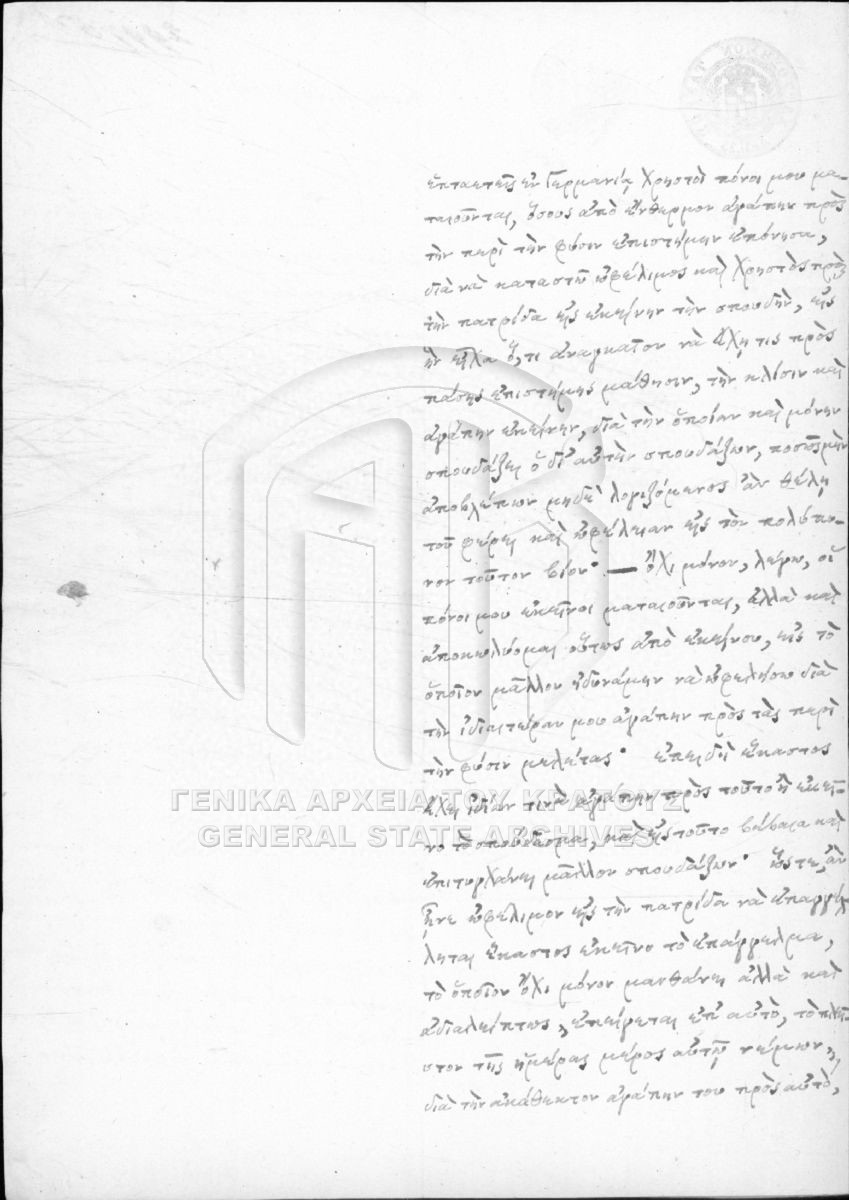 ἑπταετεῖς ἐν Γερμανίᾳ χρηστοὶ πόνοι μου μα-
ταιοῦνται, ὅσους ἀπὸ ἔνθερμον ἀγάπην πρὸς
τὴν περὶ τὴν φύσιν ἐπιστήμην ἐπόνησα,
διὰ νὰ καταστῶ ὠφέλιμος καὶ χρηστὸς πρὸς
τὴν πατρίδα εἰς ἐκείνην τὴν σπουδὴν, εἰς
ἣν εἶχα ὅ,τι ἀναγκαῖον νὰ ἔχῃ τις πρὸς
πάσης ἐπιστήμης μάθησιν, τὴν κλίσιν καὶ
ἀγάπην ἐκείνην, διὰ τὴν ὁποίαν καὶ μόνην
σπουδάζει ὁ δι' αὐτὴν σπουδάζων, ποσῶς μὴν
ἀποβλέπων μηδὲ λογιζόμενος ἂν θέλῃ
τοῦ φέρει καὶ ὠφέλειαν εἰς τὸν πολύπο-
νον τοῦτον βίον· — ὄχι μόνον, λέγω, οἱ
πόνοι μου ἐκεῖνοι ματαιοῦνται, ἀλλὰ καὶ
ἀποκωλύομαι οὕτως ἀπὸ ἐκείνου, εἰς τὸ
ὁποῖον μᾶλλον ἠδυνάμην νὰ ὠφελήσω διὰ
τὴν ἰδιαιτέραν μου ἀγάπην πρὸς τὰς περὶ
τὴν φύσιν μελέτας· ἐπειδὴ ἕκαστος
ἔχει ἰδίαν τινὰ ἀγάπην πρὸς τοῦτο ἢ ἐκεῖ-
νο τὸ σπούδασμα, καὶ εἰς τοῦτο βέβαια καὶ
ἐπιτυγχάνει μᾶλλον σπουδάζων· ὥστε, ἂν
ἦνε ὠφέλιμον εἰς τὴν πατρίδα νὰ ἐπαγγέλ-
ληται ἕκαστος ἐκεῖνο τὸ ἐπάγγελμα,
τὸ ὁποῖον ὄχι μόνον μανθάνει ἀλλὰ καὶ
ἀδιαλείπτως, ἐπείγεται ἐπ' αὐτὸ, τὸ πλεῖ-
στον τῆς ἡμέρας μέρος αὐτῷ νέμων,
διὰ τὴν ἀκάθεκτον ἀγάπην του πρὸς αὐτό,
ΓΕΝΙΚΑ ΑΡΧΕΙΑ ΤΟΥ ΚΡΑΤΟΥΣ
GENERAL STATE ARCHIVES